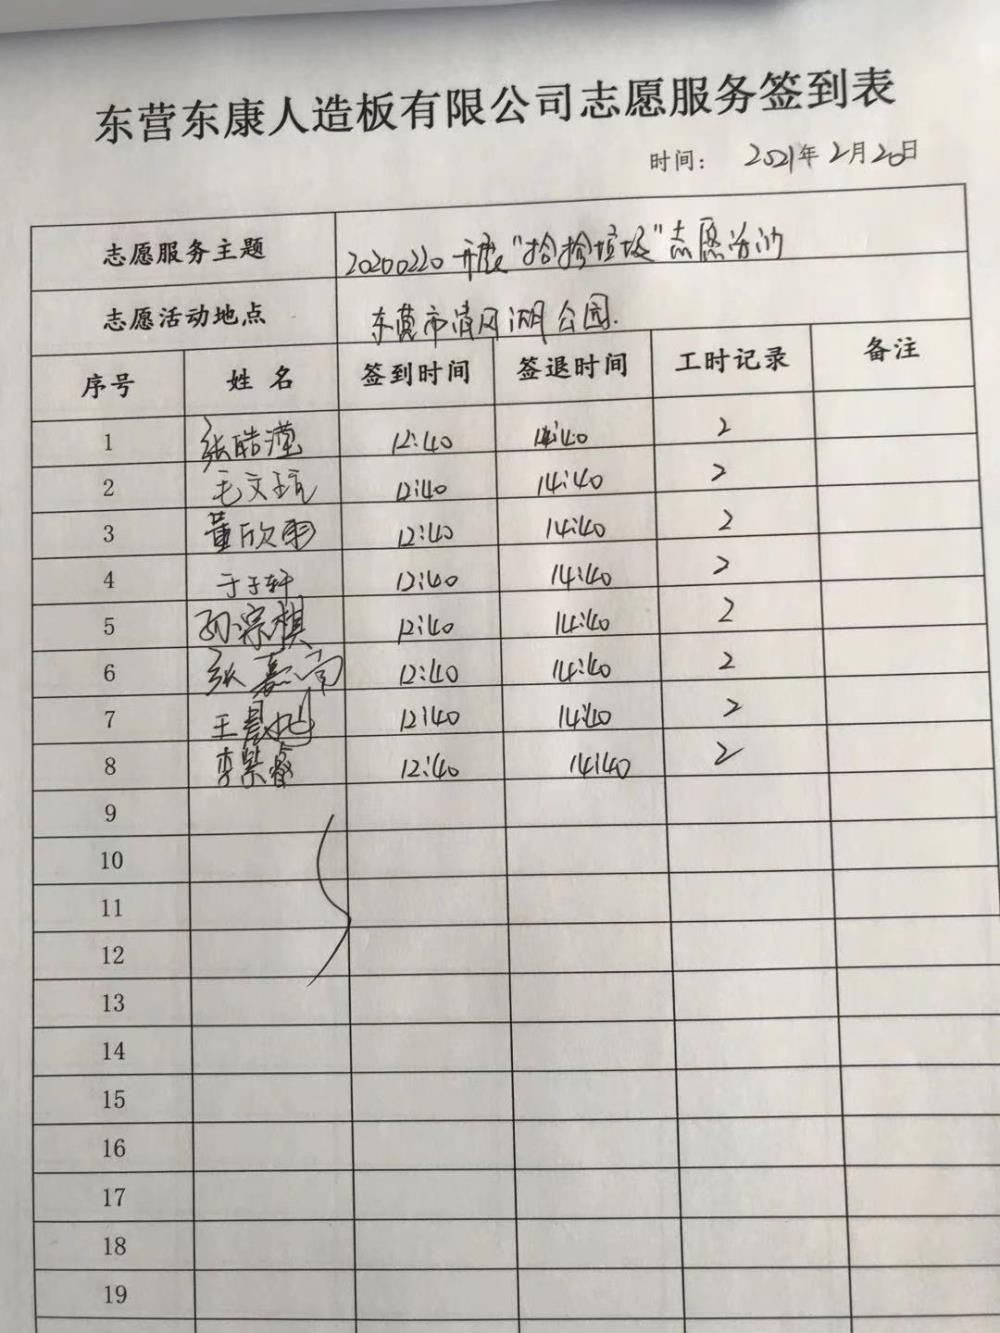 东营东康人造板有限公司志愿服务签到表
时间： 2021年2月20日
志愿服务主题 20200220开展“捡拾垃圾”志愿活动
志愿活动地点 东营市清风湖公园.
序号 姓名 签到时间 签退时间 工时记录 备注
1 张皓滢 12:40 14:40 2
2 毛文 12:40 14:40 2
3 董欣雨 12:40 14:40 2
4 于子轩 12:40 14:40 2
5 孙宗棋 12:40 14:40 2
6 张嘉 12:40 14:40 2
7 王晨 12:40 14:40 2
8 李紫睿 12:40 14:40 2
9
10
11
12
13
14
15
16
17
18
19